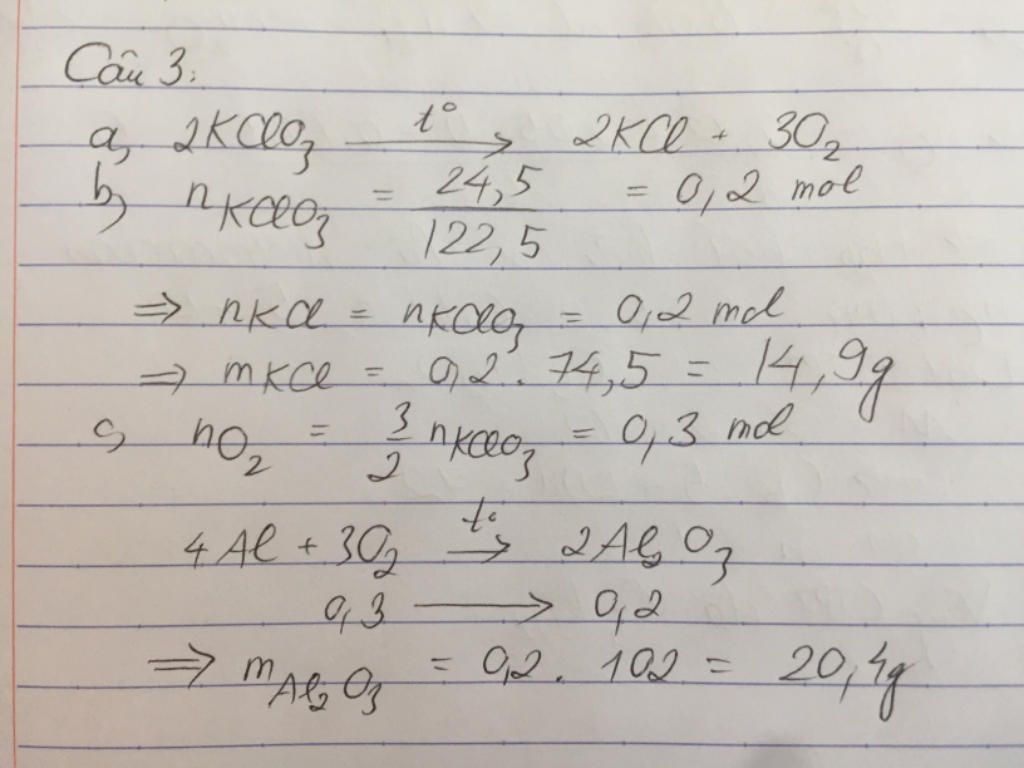 Câu 3:
a, 2KClO₃ —t°→ 2KCl + 3O₂
b, nKClO₃ = 24,5/122,5 = 0,2 mol
⇒ nKCl = nKClO₃ = 0,2 mol
⇒ mKCl = 0,2 . 74,5 = 14,9g
c, nO₂ = 3/2 nKClO₃ = 0,3 mol
4Al + 3O₂ —t°→ 2Al₂O₃
0,3 → 0,2
⇒ mAl₂O₃ = 0,2 . 102 = 20,4g